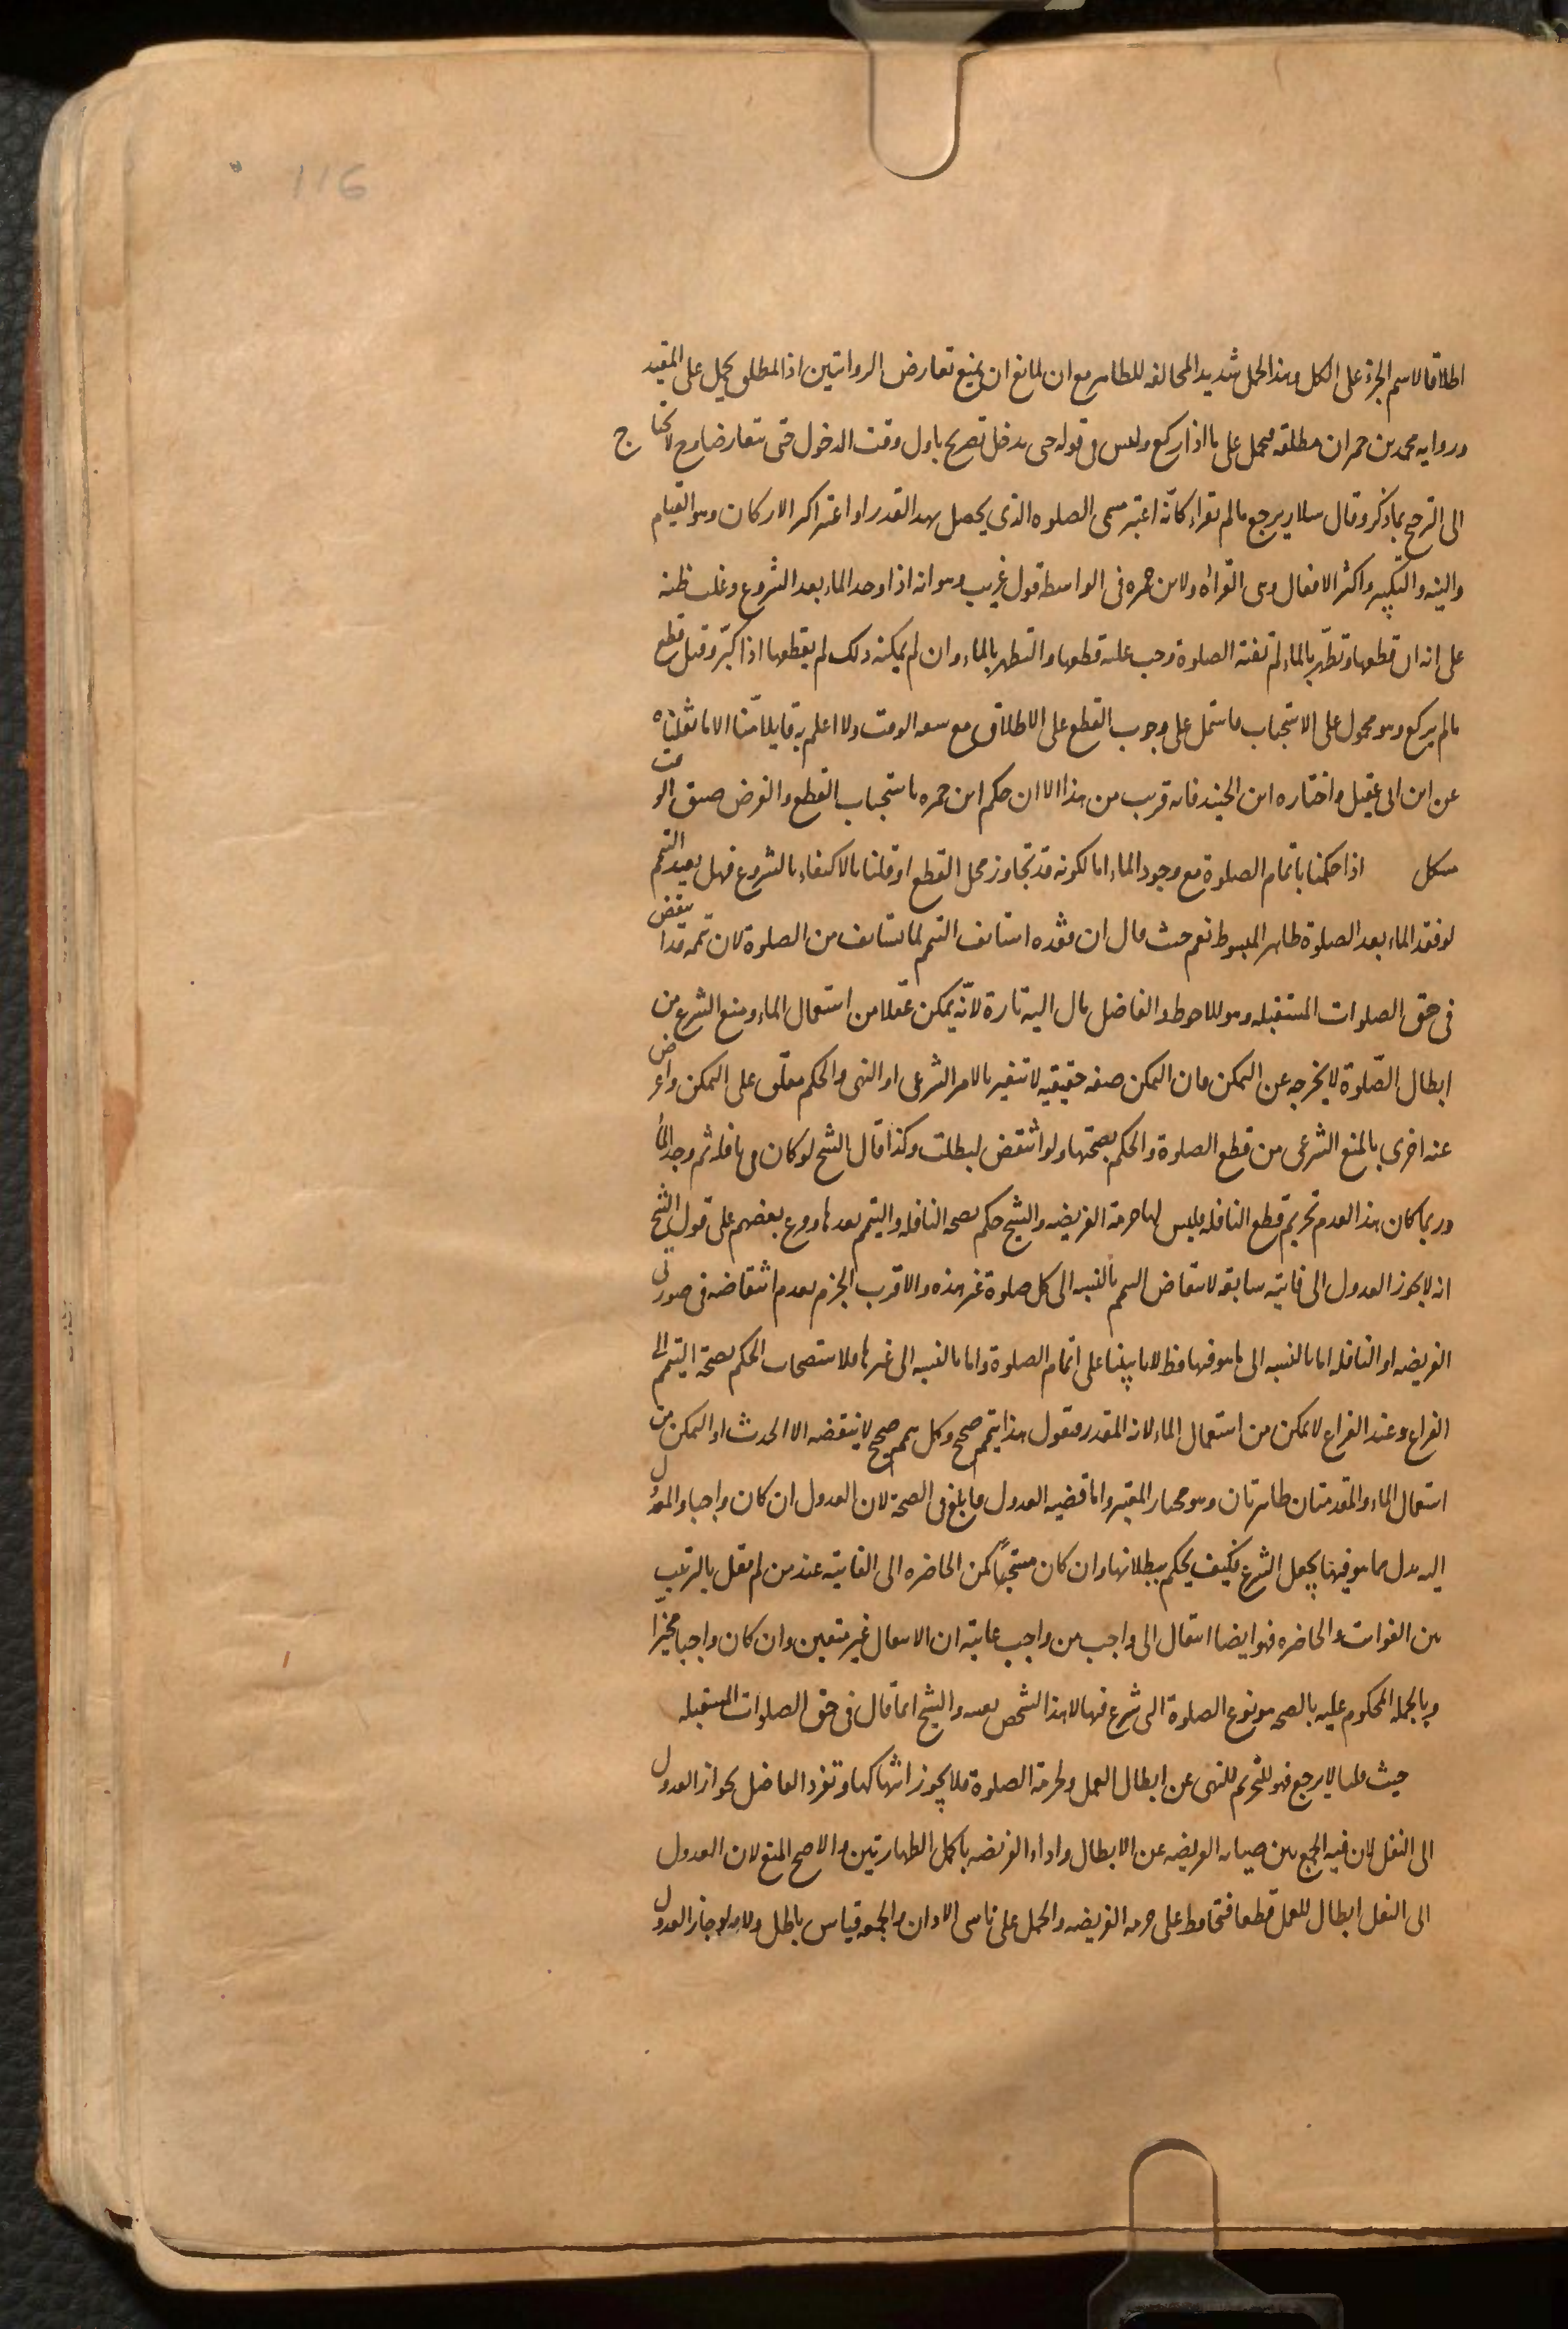 116
اطلاقا لاسم الجزء على الكل وهذا الحمل شديد المخالفه للظاهر مع ان لمانع ان يمنع تعارض الروايتين اذ المطلق يحمل على المقيد
وروايه محمد بن حمران مطلقه فيحمل على ما اذا ركع وليس في قوله حين يدخل تصريح باول وقت الدخول حتى يتعارضا وح لا يحتاج
الى الترجيح بما ذكر وقال سلار يرجع ما لم يقراء كانّه اعتبر مسمى الصلوه الذي يحصل بهذا القدر او اعتبر اكثر الاركان وهو القيام
والنيه والتكبير واكثر الافعال وهى القراة ولابن حمزه فى الواسطه قول غريب وهو انه اذا وجد الماء بعد الشروع وغلب ظنه
على انه ان قطعها وتطهّر بالماء لم تفته الصلوة وجب عليه قطعها والتطهر بالماء وان لم يمكنه ذلك لم يقطعها اذا كبّر وقيل قطع
ما لم يركع وهو محمول على الاستحباب فاشتمل على وجوب القطع على الاطلاق مع سعه الوقت ولا اعلم به قايلا منّا الا ما نقلناه
عن ابن ابى عقيل واختاره ابن الجنيد فانه قريب من هذا الا ان حكم ابن حمزه باستحباب القطع والفرض ضيق الوقت
مشكل اذا حكمنا باتمام الصلوة مع وجود الماء اما لكونه قد تجاوز محل القطع او قلنا بالاكتفاء بالشروع فهل يعيد التيمم
لو فقد الماء بعد الصلوة ظاهر المبسوط نعم حيث قال ان فقده استانف التيمم لما يستانف من الصلوة لان تيممه قد انتقض
فى حق الصلوات المستقبله وهو الاحوط والفاضل مال اليه تارة لانّه يمكن عقلا من استعمال الماء ومنع الشرع من
ابطال الصّلوة لا يخرجه عن التمكن فان التمكن صفه حقيقيه لا تتغير بالامر الشرعى او النهى والحكم معلّق على التمكن واعرض
عنه اخرى بالمنع الشرعى من قطع الصلوة والحكم بصحتها ولو انتقض لبطلت وكذا قال الشيخ لو كان فى نافله ثم وجد الماء
وربما كان هذا لعدم تحريم قطع النافله فليس لها حرمة الفريضه والشيخ حكم بصحه النافله والتيمم بعدها وفرع بعضهم على قول الشيخ
انه لا يجوز العدول الى فايته سابقه لانتقاض التيمم بالنسبه الى كل صلوة غير هذه والاقرب الجزم بعدم انتقاضه فى صورتى
الفريضه او النافله اما بالنسبه الى ما هو فيها فظ لانا بيّنا على اتمام الصلوة واما بالنسبه الى غيرها فلاستصحاب الحكم بصحة التيمم الى
الفراغ وعند الفراغ لا تمكن من استعمال الماء لانه المقدر فنقول هذا تيمم صحيح وكل تيمم صحيح لا ينقضه الا الحدث او التمكن من
استعمال الماء والمقدمتان ظاهرتان وهو مختار المعتبر واما قضيه العدول فابلغ فى الصحة لان العدول ان كان واجبا والمعدول
اليه بدل مما هو فيها بجعل الشرع فكيف يحكم ببطلانها وان كان مستحبًا كمن الحاضره الى الفايته عند من لم يقل بالترتيب
بين الفوائت والحاضره فهو ايضا انتقال الى واجب من واجب غايته ان الانتقال غير متعين وان كان واجبا مخيّرا
وبالجمله المحكوم عليه بالصحه هو نوع الصلوة التى شرع فيها لا هذا الشخص بعينه والشيخ انما قال فى حق الصلوات المستقبله
حيث قلنا لا يرجع فهو للتحريم للنهى عن ابطال العمل ولحرمة الصلوة فلا يجوز انتهاكها وتفرد الفاضل بجواز العدول
الى النفل لان فيه الجمع بين صيانه الفريضه عن الابطال واداء الفريضه باكمل الطهارتين والاصح المنع لان العدول
الى النفل ابطال للعمل قطعا فتحافظ على حرمه الفريضه والحمل على ناسى الاذان والجمعه قياس باطل ولانه لو جاز العدول